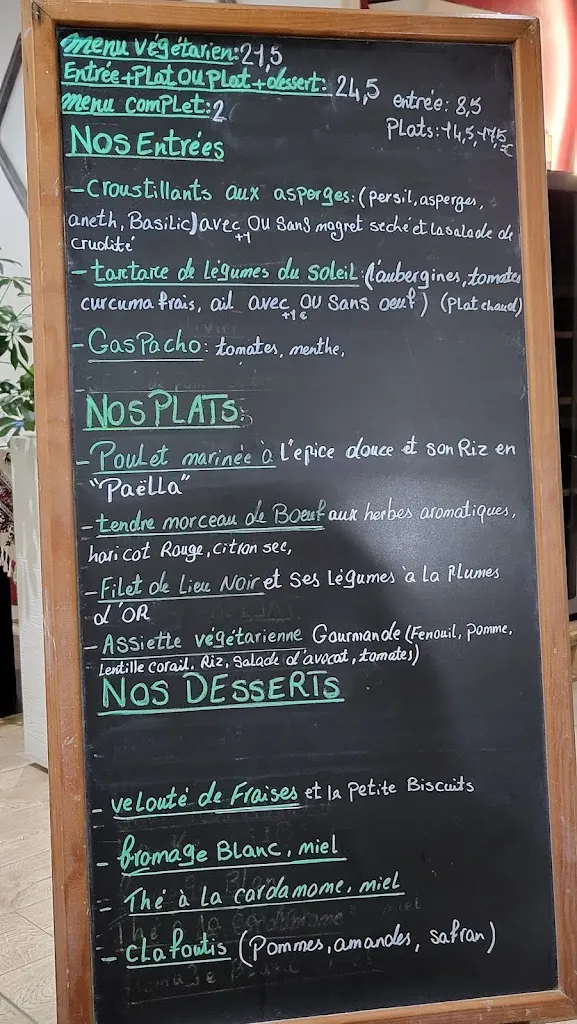 menu végétarien: 21,5
Entrée+Plat OU Plat+dessert: 24,5
menu complet: 2
entrée: 8,5
Plats: 14,5-17,5€
NOS Entrées
- Croustillants aux asperges: (persil, asperges,
aneth, Basilic) avec OU Sans magret seché et la salade de
+1
crudité
- tartare de Légumes du Soleil: (l'aubergines, tomates
curcuma frais, ail avec OU Sans oeuf) (Plat chaud)
+1€
- Gaspacho: tomates, menthe,
NOS PLATS:
- Poulet marinée à l'epice douce et son Riz en
"Paëlla"
- tendre morceau de Boeuf aux herbes aromatiques,
haricot Rouge, citron sec,
- Filet de Lieu Noir et Ses Légumes à la Plumes
d'OR
- Assiette végétarienne Gourmande (Fenouil, Pomme,
Lentille corail, Riz, Salade d'avocat, tomates)
NOS DESSERTS
- velouté de Fraises et la Petite Biscuits
- fromage Blanc, miel
- Thé à la cardamome, miel
- clafoutis (Pommes, amandes, safran)